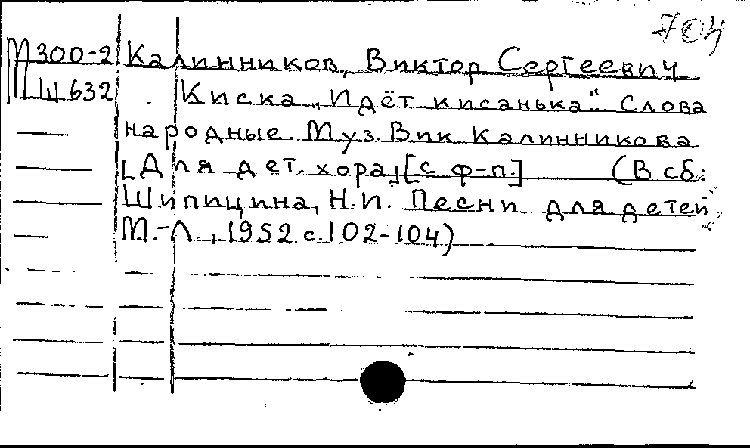 704
М300-2 Калинников, Виктор Сергеевич
Ш632 Киска „Идёт кисанька". Слова
народные. Муз. Вик. Калинникова
[Для дет. хора] [с ф-п.] (В сб.:
Шипицина, Н.И. Песни для детей.
М.-Л., 1952 с.102-104)